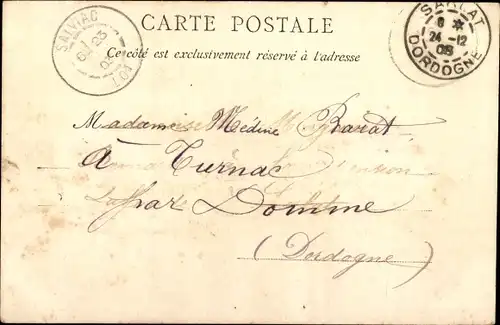 CARTE POSTALE
Ce côté est exclusivement réservé à l'adresse
SALVIAC
23
LOT
SARLAT
24 -12
03
DORDOGNE
Madame Médine Barat
à Turnac
par Domme
(Dordogne)